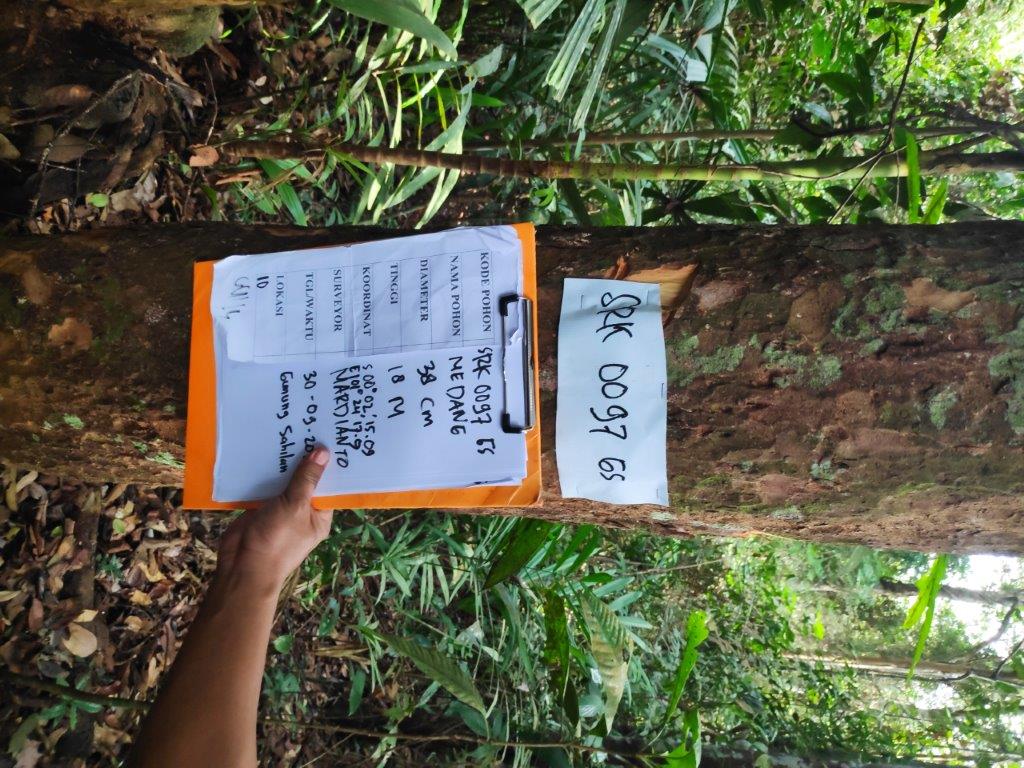 SRK 0097 GS
KODE POHON SRK 0097 GS
NAMA POHON MEDANG
DIAMETER 38 Cm
TINGGI 18 M
KOORDINAT S 00° 02' 15.09
E 101° 24' 17.9
SURVEYOR MARDIANTO
TGL/WAKTU 30-09-20
LOKASI Gunung Sahilan
10